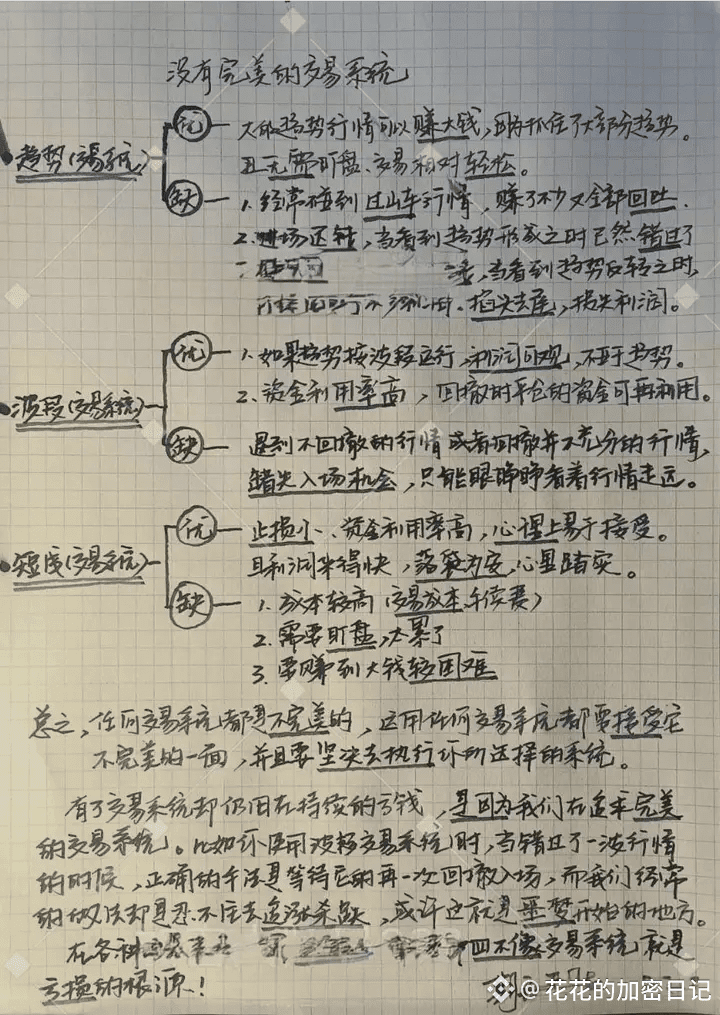 没有完美的交易系统
趋势(交易系统)
优 大级趋势行情可以赚大钱,因为抓住了大部分趋势。
且无需盯盘、交易相对轻松。
缺 1.经常碰到过山车行情,赚了不少又全部回吐.
2.进场迟钝,当看到趋势形成之时已然错过了
当看到趋势反转之时,
掐头去尾,损失利润。
波段(交易系统)
优 1.如果趋势按波段运行,利润可观,不亚于趋势。
2、资金利用率高,回撤时平仓的资金可再利用。
缺 遇到不回撤的行情或者回撤并不充分的行情,
错失入场机会,只能眼睁睁看着行情走远。
短线(交易系统)
优 止损小、资金利用率高,心理上易于接受。
且利润来得快,落袋为安,心里踏实。
缺 1.成本较高(交易成本,手续费)
2.需要盯盘,太累了
3.要赚到大钱较困难
总之,任何交易系统都是不完美的,运用任何交易系统都要接受它
不完美的一面,并且要坚决去执行你所选择的系统。
有了交易系统却仍旧在持续的亏钱,是因为我们在追求完美
的交易系统。比如你使用波段交易系统时,当错过了一波行情
的时候,正确的手法是等待它的再一次回撤入场,而我们经常
的做法却是忍不住去追涨杀跌,或许这就是噩梦开始的地方。
在各种 四不像交易系统就是
亏损的根源!
@花花的加密日记